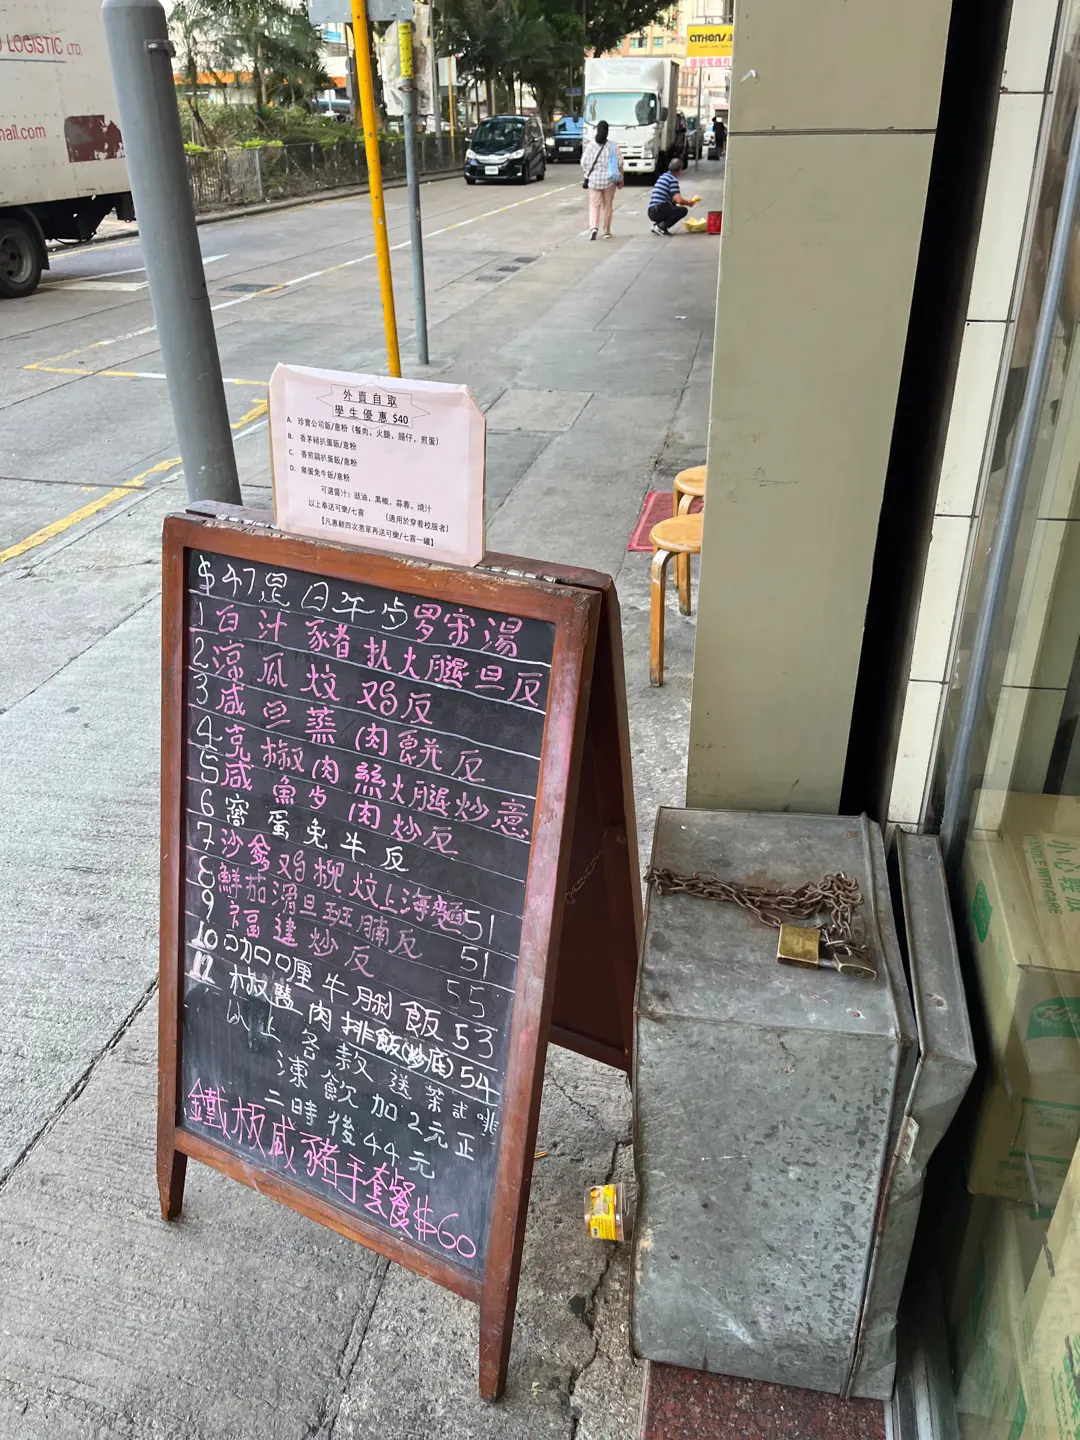 LOGISTIC LTD.
mail.com
ATHENS
外賣自取
學生優惠 $40
A. 珍寶公司飯/意粉 (餐肉，火腿，腸仔，煎蛋)
B. 香茅豬扒蛋飯/意粉
C. 香煎鷄扒蛋飯/意粉
D. 窩蛋免牛飯/意粉
可選醬汁：豉油，黑椒，蒜蓉，燒汁
以上奉送可樂/七喜 (適用於穿着校服者)
【凡惠顧四次憑單再送可樂/七喜一罐】
$47是日午歺罗宋湯
1白汁豬扒火腿旦反
2涼瓜炆鸡反
3咸旦蒸肉餅反
4克椒肉絲火腿炒意
5咸魚歺肉炒反
6窩蛋免牛反
7沙爹鸡柳炆上海麵51
8鮮茄滑旦班腩反 51
9福建炒反 55
10咖喱牛脷飯53
11椒鹽肉排飯(炒底)54
以上各款送茶或啡
凍飲加2元正
二時後44元
鐵板咸豬手套餐$60
小心輕放
HANDLE WITH CARE